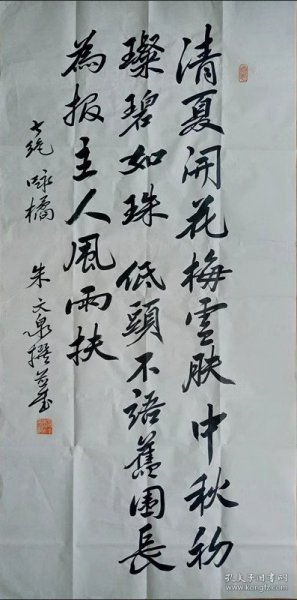 清夏開花梅雪肤中秋初
璨碧如珠低頭不語舊園長
為报主人風雨扶
七绝 咏橘 朱文泉撰并书
孔夫子旧书网